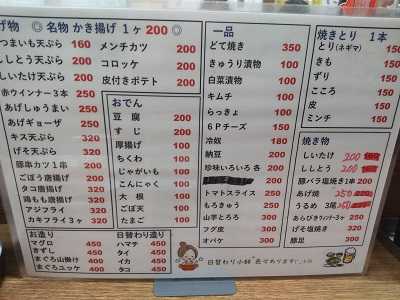 げ物 ◎ 名物 かき揚げ 1ヶ 200 ◎
つまいも天ぷら 160
ししとう天ぷら 200
しいたけ天ぷら 200
赤ウインナー3本 250
あげしゅうまい 250
あげギョーザ 250
キス天ぷら 320
げそ天ぷら 320
豚串カツ1串 200
ごぼう唐揚げ 200
タコ唐揚げ 320
鶏もも唐揚げ 320
アジフライ 320
カキフライ3ヶ 320
メンチカツ 200
コロッケ 200
皮付きポテト 200
おでん
豆腐 200
すじ 200
厚揚げ 100
ちくわ 100
じゃがいも 100
こんにゃく 100
大根 100
ごぼ天 100
たまご 100
お造り
マグロ 450
きずし 450
まぐろ山掛け 450
まぐろユッケ 450
日替わり造り
ハマチ 450
タイ 450
イカ 450
タコ 450
一品
どて焼き 350
きゅうり漬物 100
白菜漬物 100
キムチ 100
らっきょ 100
6Pチーズ 150
冷奴 180
納豆 200
珍味いろいろ 各 200
200
トマトスライス 250
もろきゅう 250
山芋とろろ 300
フグ皮 300
オバケ 300
日替わり小鉢 売てあります
焼きとり 1本
とり(ネギマ) 150
きも 150
ずり 150
こころ 150
皮 150
ミンチ 150
焼き物
しいたけ 200
ししとう 200
豚バラ塩焼き1串 200
あげ焼 250
うるめ 3尾 250
あらびきウィンナー3ヶ 250
げそ塩焼き 320
豚足 320